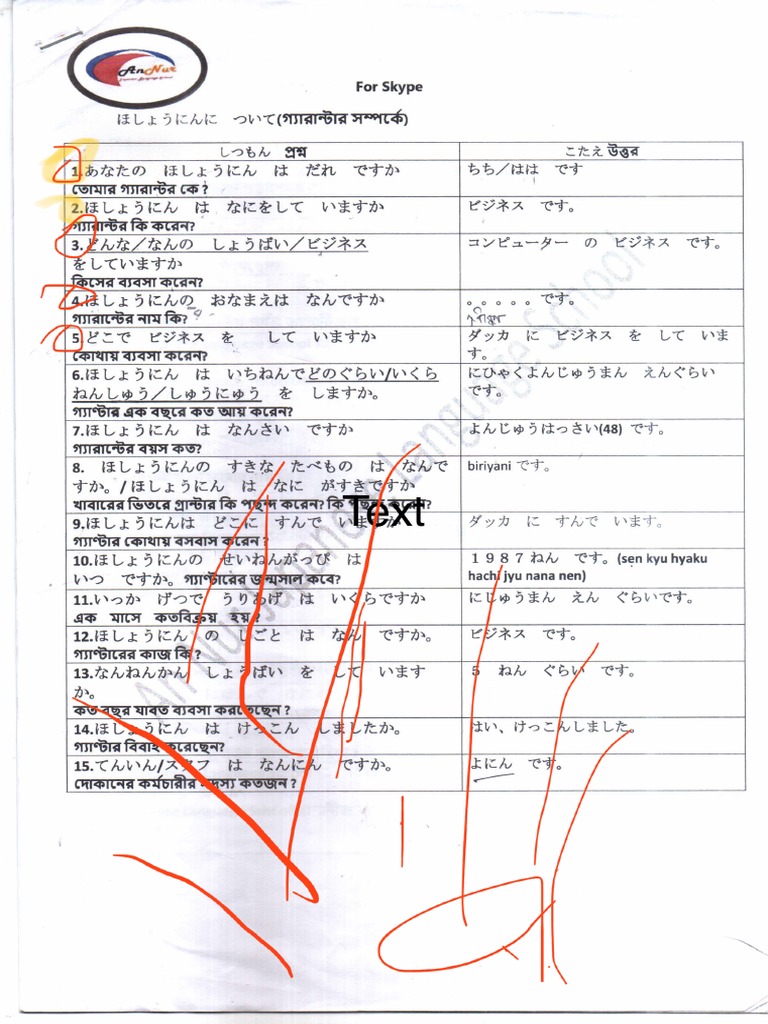 AnNur
For Skype
ほしょうにんに ついて(গ্যারান্টার সম্পর্কে)
しつもん প্রশ্ন
こたえ উত্তর
1.あなたの ほしょうにん は だれ ですか
তোমার গ্যারান্টর কে ?
ちち／はは です
2.ほしょうにん は なにをして いますか
গ্যারান্টর কি করেন?
ビジネス です。
3.どんな／なんの しょうばい／ビジネス
をしていますか
কিসের ব্যবসা করেন?
コンピューター の ビジネス です。
4.ほしょうにんの おなまえは なんですか
গ্যারান্টের নাম কি?
。。。。。です。
5.どこで ビジネス を して いますか
কোথায় ব্যবসা করেন?
ダッカ に ビジネス を して いま
す。
6.ほしょうにん は いちねんでどのぐらい/いくら
ねんしゅう／しゅうにゅう を しますか。
গ্যাণ্টার এক বছরে কত আয় করেন?
にひゃくよんじゅうまん えんぐらい
です。
7.ほしょうにん は なんさい ですか
গ্যারান্টের বয়স কত?
よんじゅうはっさい(48) です。
8. ほしょうにんの すきな たべもの は なんで
すか。/ほしょうにん は なに がすきですか
খাবারের ভিতরে গ্রান্টার কি পছন্দ করেন? কি পছন্দ করেন?
biriyani です。
Text
9.ほしょうにんは どこに すんで いますか
গ্যাণ্টার কোথায় বসবাস করেন ?
ダッカ に すんで います。
10.ほしょうにんの せいねんがっぴ は
いつ ですか。গ্যাণ্টারের জন্মসাল কবে?
１９８７ねん です。(sen kyu hyaku
hachi jyu nana nen)
11.いっか げつで うりあげ は いくらですか
এক মাসে কতবিক্রয় হয় ?
にじゅうまん えん ぐらいです。
12.ほしょうにん の しごと は なん ですか。
গ্যাণ্টারের কাজ কি ?
ビジネス です。
13.なんねんかん しょうばい を して います
か。
কত বছর যাবত ব্যবসা করতেছেন ?
5 ねん ぐらい です。
14.ほしょうにん は けっこん しましたか。
গ্যাণ্টার বিবাহ করেছেন?
はい、けっこんしました。
15.てんいん/スタッフ は なんにん ですか。
দোকানের কর্মচারীর সদস্য কতজন ?
よにん です。
An Nur Japanese Language School